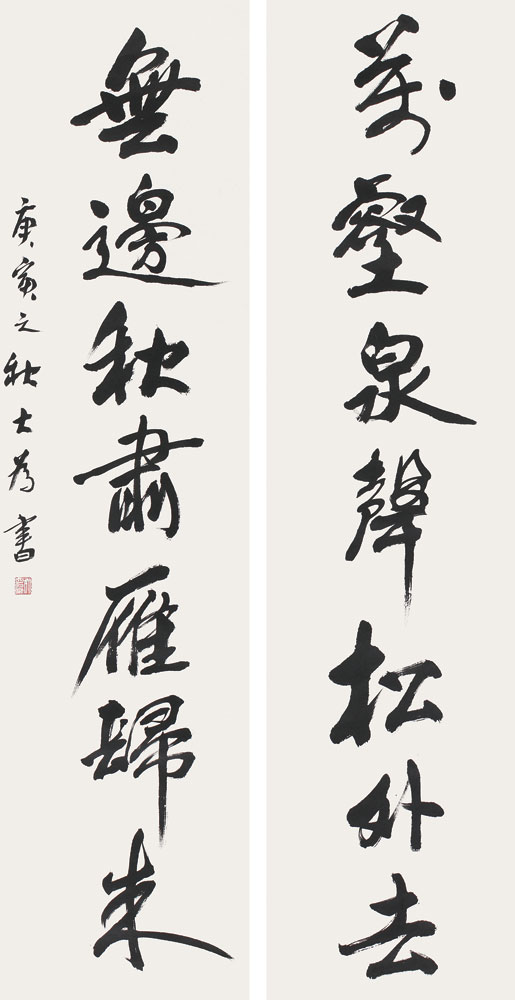 萬壑泉聲松外去
無邊秋肅雁歸来
庚寅之秋大為書